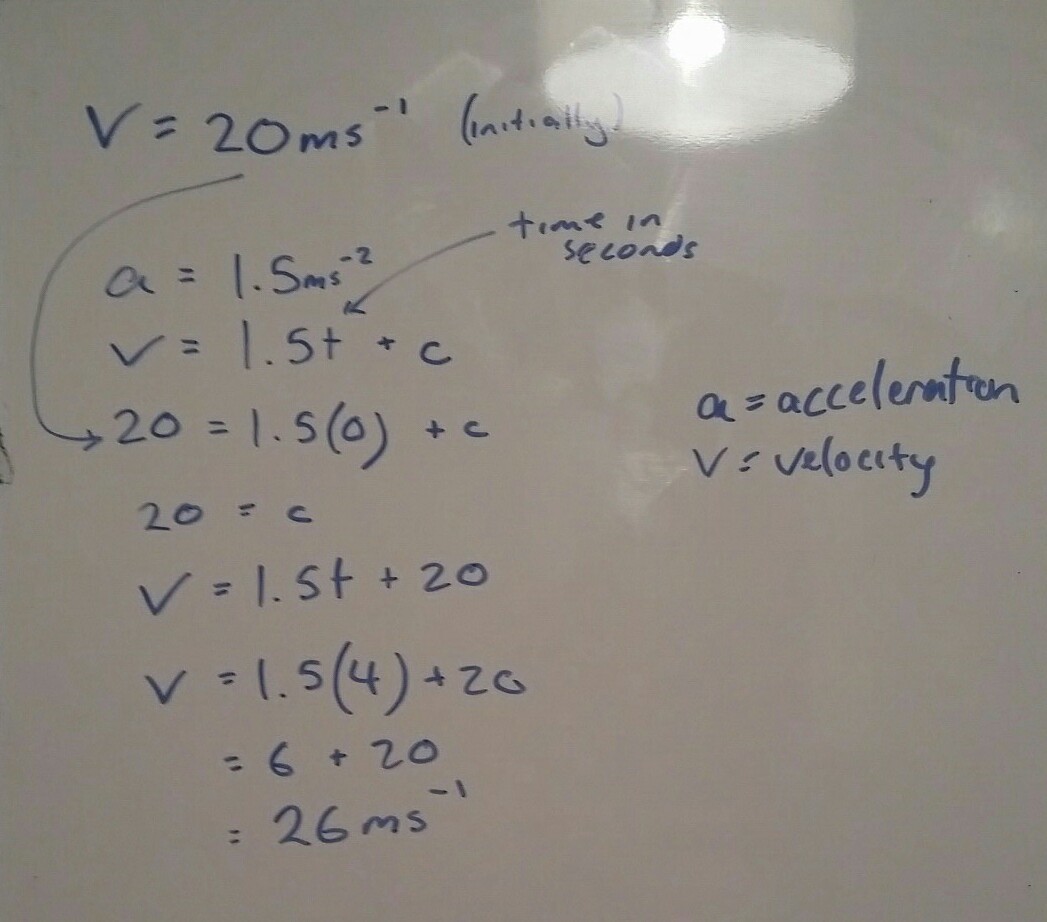 V = 20ms⁻¹ (initially)
time in
seconds
a = 1.5ms⁻²
v = 1.5t + c
20 = 1.5(0) + c
20 = c
V = 1.5t + 20
V = 1.5(4) + 20
= 6 + 20
= 26ms⁻¹
a = acceleration
V = velocity